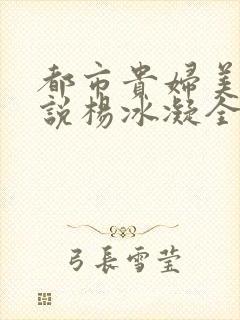 都市貴婦美
説楊冰凝全
弓長雪莹